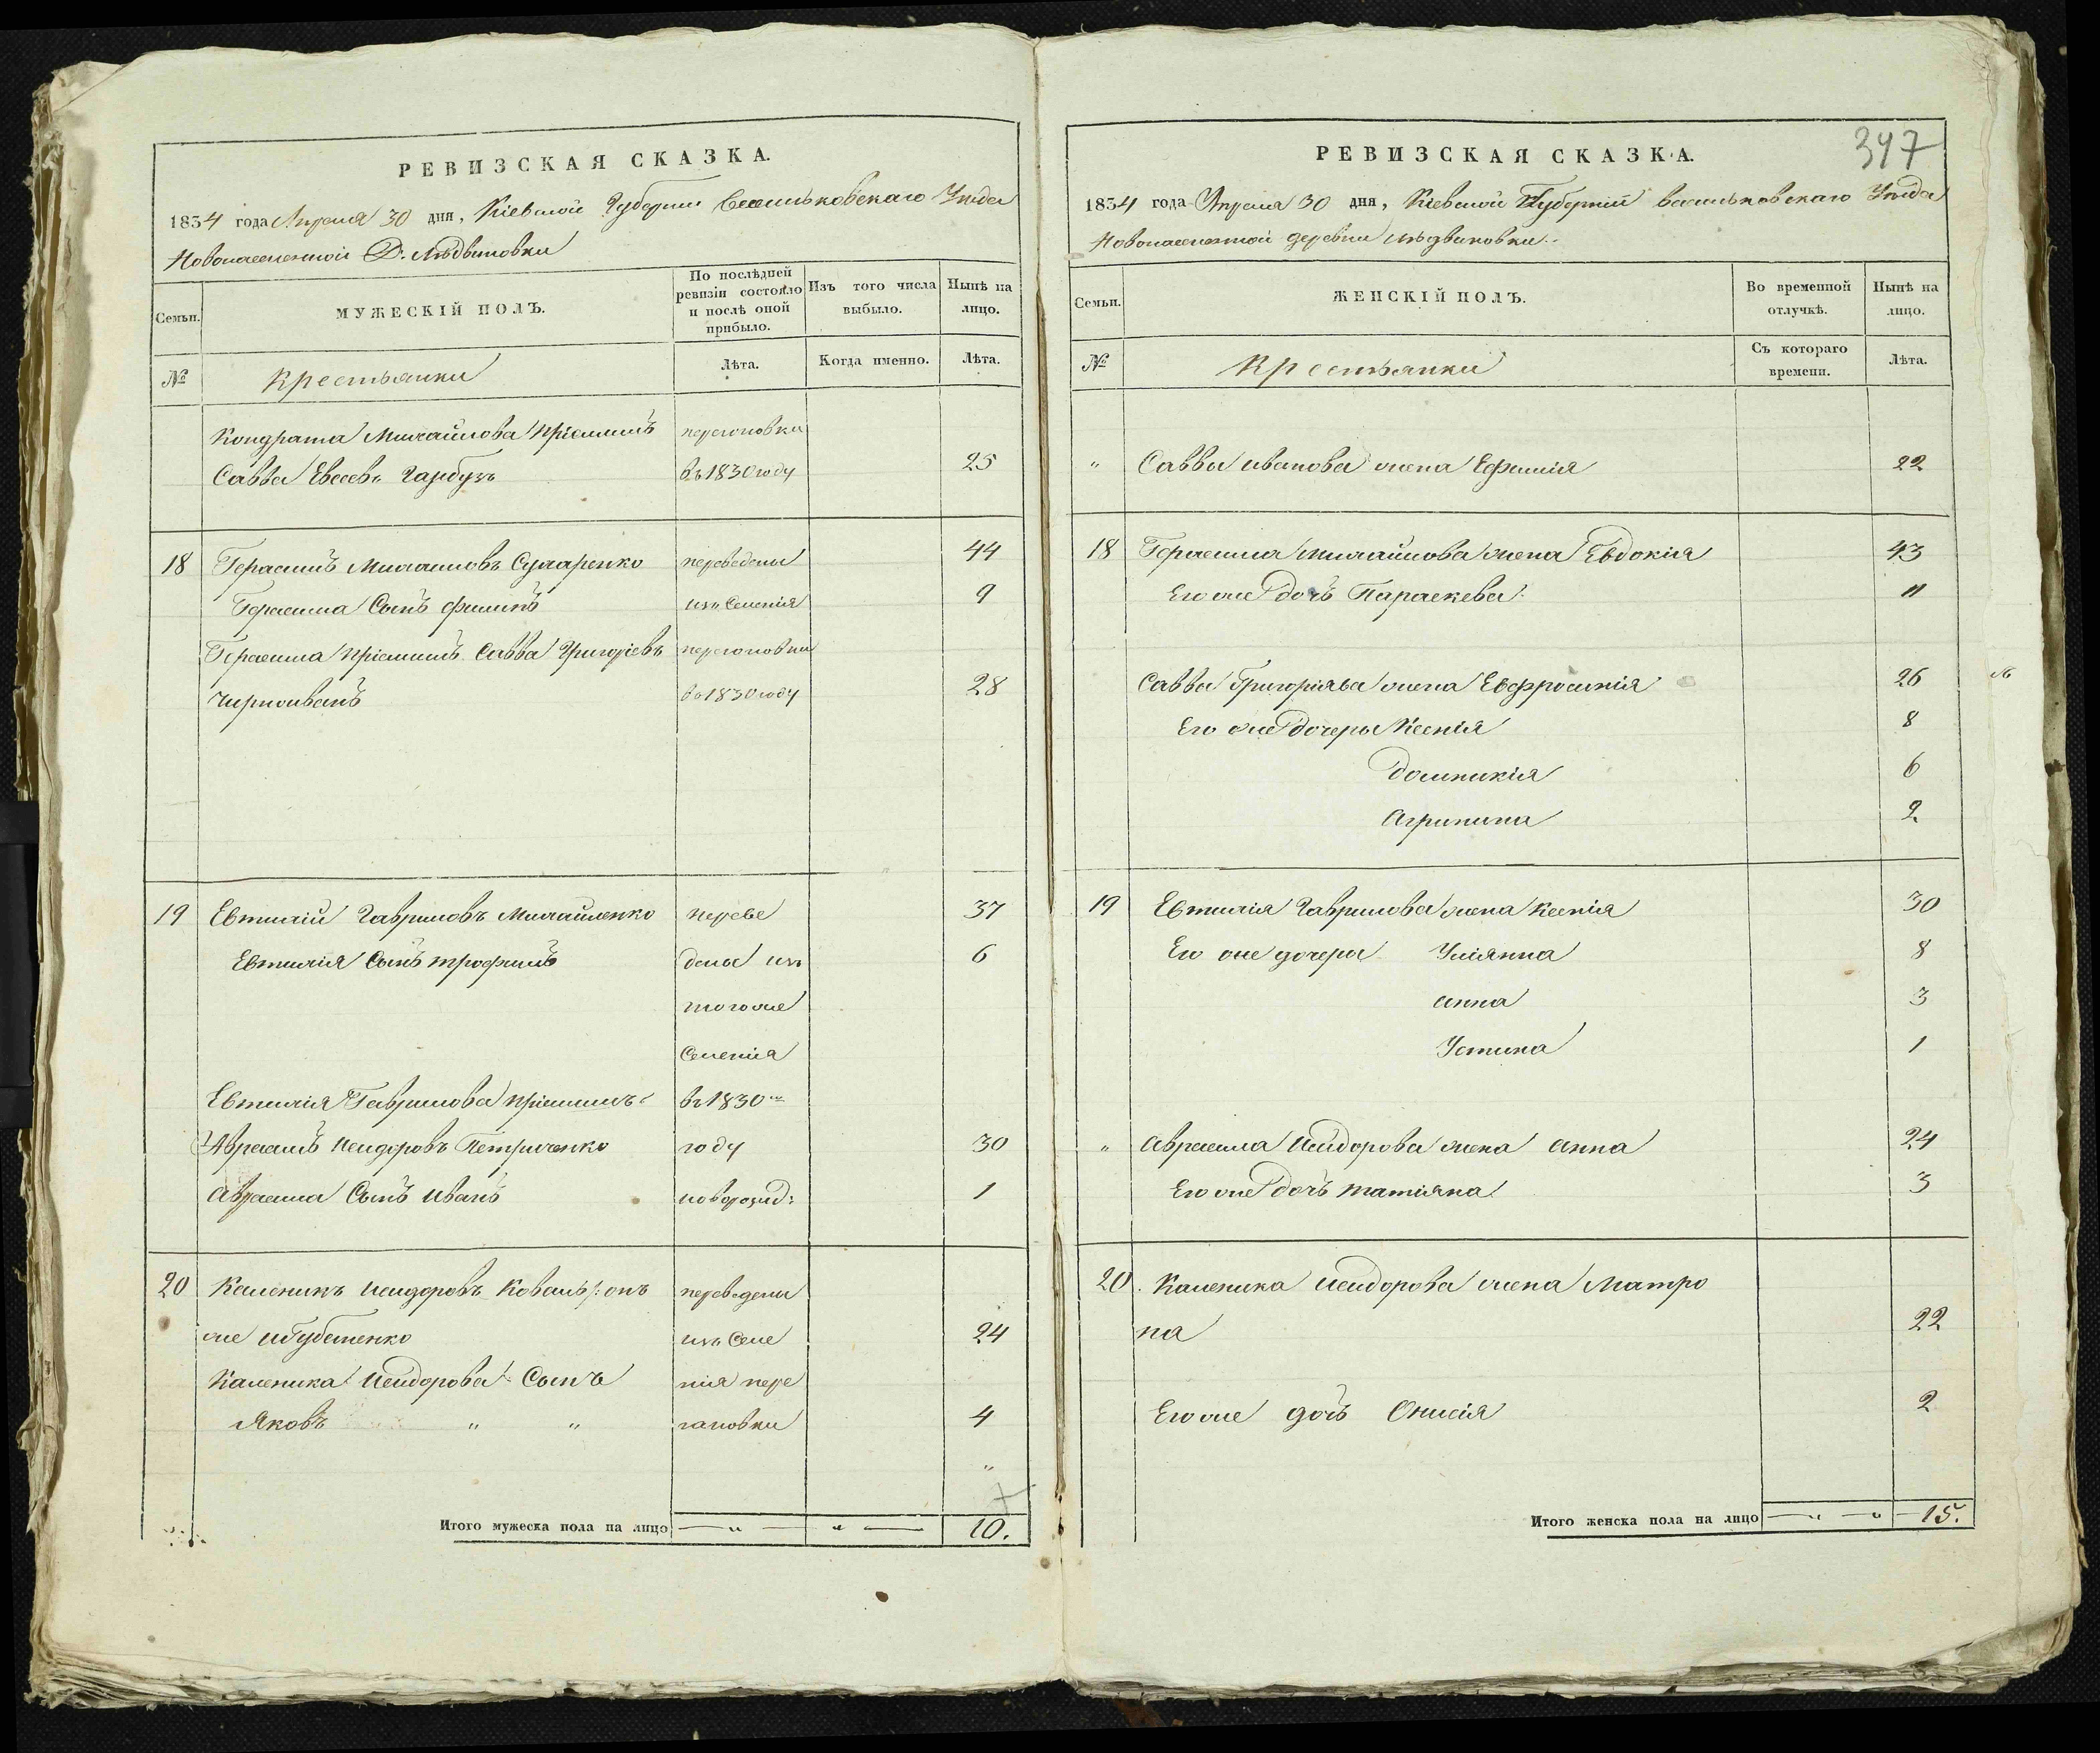 РЕВИЗСКАЯ СКАЗКА.
1834 года Апреля 30 дня, Кіевской Губерніи Васильковскаго Уѣзда
Новонаселенной Д. Людвиновки
Семьи.
МУЖЕСКІЙ ПОЛЪ.
По послѣдней ревизіи состояло и послѣ оной прибыло.
Изъ того числа выбыло.
Нынѣ на лицо.
№
Крестьянки
Лѣта.
Когда именно.
Лѣта.
Кондрата Михайлова пріемишъ перегоновки
Савва Евсеевъ Гарбузъ въ 1830 году 25
18 Герасимъ Михаиловъ Сухаренко переведены 44
Герасима Сынъ филипъ изъ Селенія 9
Герасима пріемишъ Савва Григоріевъ перегоновки
Чирноиванъ въ 1830 году 28
19 Евтихій Гавриловъ Михайленко переве 37
Евтихія Сынъ трофимъ дены изъ 6
тогоже
Селенія
Евтихія Гаврилова пріемишъ въ 1830мъ
Аврамъ Исидоровъ Петриченко году 30
Аврама Сынъ иванъ новорожд: 1
20 Каленикъ Исидоровъ Коваль /: онъ переведены
же изъ Селе 24
Каленика Исидорова Сынъ нія пере
Яковъ " " гоновки 4
"
Итого мужеска пола на лицо — " — " — 10.
347
РЕВИЗСКАЯ СКАЗКА.
1834 года Апреля 30 дня, Кіевской Губерніи васильковскаго Уѣзда
Новонаселенной деревни людвиновки.
Семьи.
ЖЕНСКІЙ ПОЛЪ.
Во временной отлучкѣ.
Нынѣ на лицо.
№
Крестьянки
Съ котораго времени.
Лѣта.
" Саввы иванова жена Ефимія 22
18 Герасима михайлова жена Евдокія 43
Его же дочъ Параскева 11
Саввы Григоріява жена Евфросинія 26
Его же дочеры Ксенія 8
домникія 6
Агрипина 2
19 Евтихія Гаврилова жена Ксенія 30
Его же дочеры Уліянна 8
анна 3
Устина 1
" Аврама Исидорова жена анна 24
Его же дочъ татіяна 3
20. Каленика Исидорова жена Матро
на 22
Его же дочъ Онисія 2
Итого женска пола на лицо — " — " — 15.